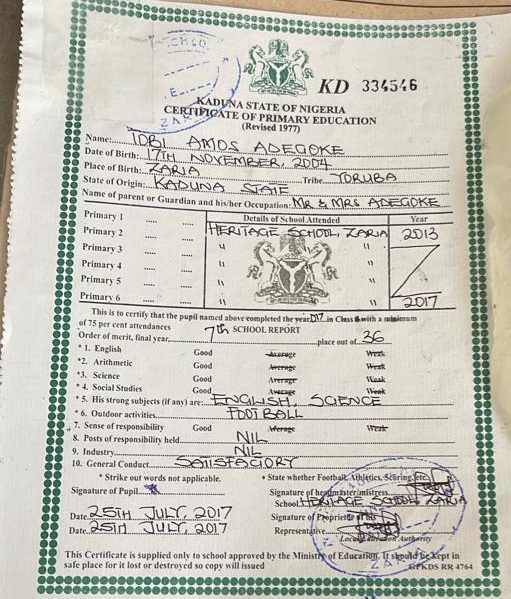 KD 334546
KADUNA STATE OF NIGERIA
CERTIFICATE OF PRIMARY EDUCATION
(Revised 1977)
Name: TOBI AMOS ADEGOKE
Date of Birth: 17TH NOVEMBER, 2004
Place of Birth: ZARIA Tribe YORUBA
State of Origin: KADUNA STATE
Name of parent or Guardian and his/her Occupation: MR & MRS ADEGOKE
Details of School Attended Year
Primary 1 ..... .....
Primary 2 ..... ..... HERITAGE SCHOOL, ZARIA 2013
Primary 3 ..... ..... " "
Primary 4 ..... ..... " "
Primary 5 ..... ..... " "
Primary 6 ..... ..... " " 2017
This is to certify that the pupil named above completed the year 2017 in Class 6 with a minimum
of 75 per cent attendances
SCHOOL REPORT
Order of merit, final year, 7th place out of 36
*1. English Good Average Weak
*2. Arithmetic Good Average Weak
*3. Science Good Average Weak
*4. Social Studies Good Average Weak
*5. His strong subjects (if any) are: ENGLISH, SCIENCE
*6. Outdoor activities FOOTBALL
7. Sense of responsibility Good Average Weak
8. Posts of responsibility held NIL
9. Industry NIL
10. General Conduct SATISFACTORY
* Strike out words not applicable. * State whether Football, Athletics, Scoring, etc.
Signature of Pupil Signature of headmaster/mistress
School HERITAGE SCHOOL ZARIA
Date 25TH JULY, 2017 Signature of Proprietor of his
Date 25TH JULY, 2017 Representative
Local Education Authority
This Certificate is supplied only to school approved by the Ministry of Education. It should be kept in
safe place for it lost or destroyed so copy will issued
GPKDS RR 4764